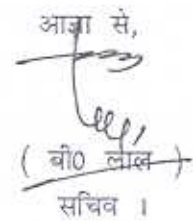 आज्ञा से,
( बी0 लाल )
सचिव ।